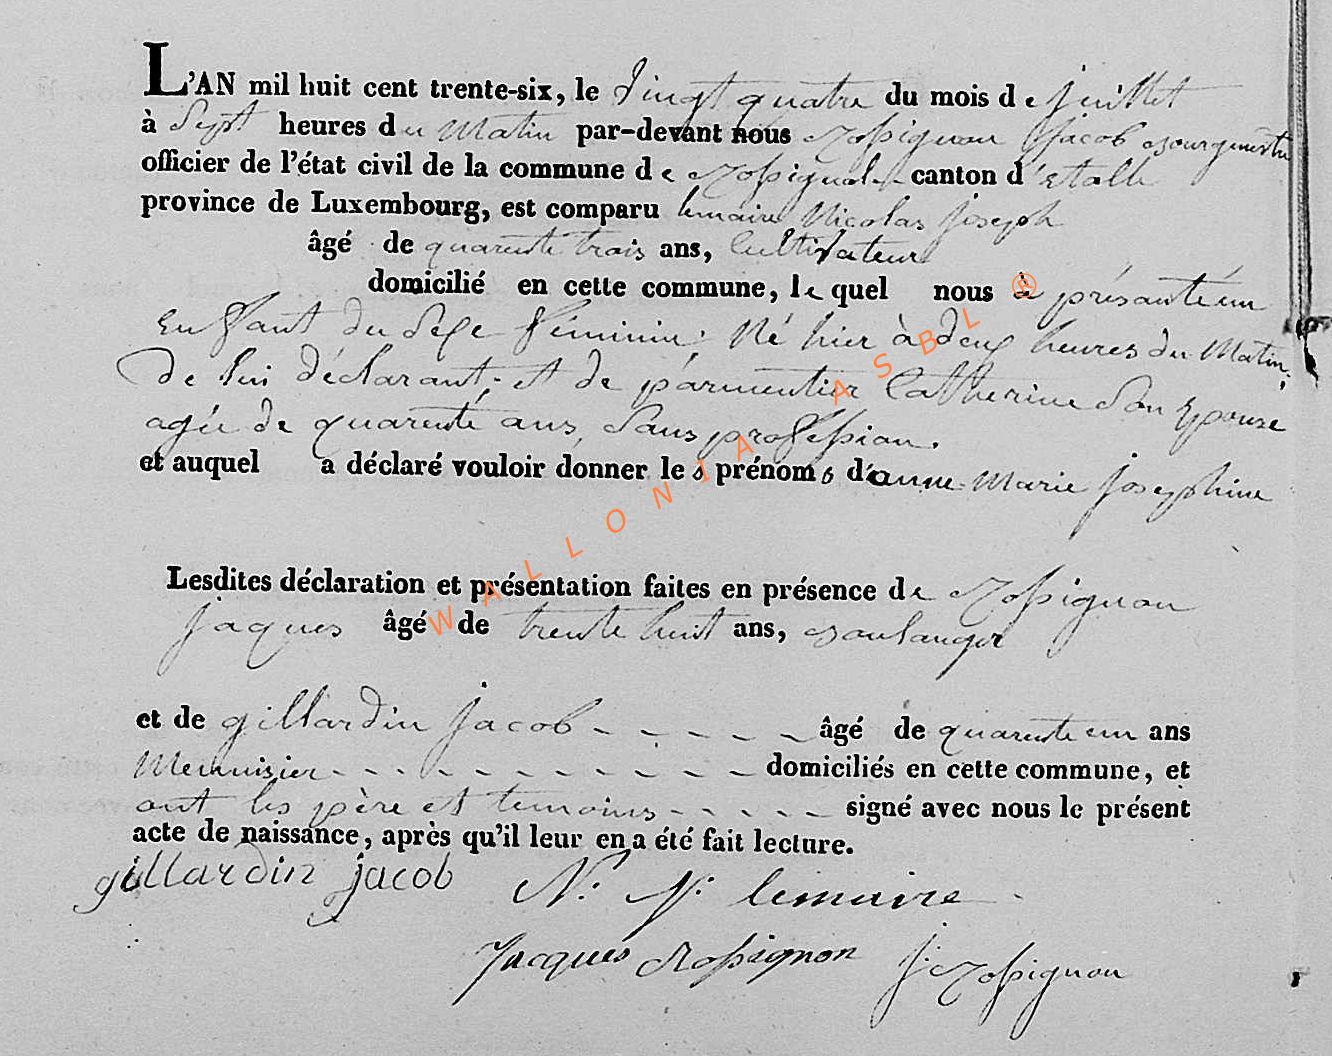 L'AN mil huit cent trente-six, le vingt quatre du mois de juillet
à Sept heures du Matin par-devant nous Rossignon Jacob Bourgmestre
officier de l'état civil de la commune de Rossignol canton d'etalle
province de Luxembourg, est comparu lemaire Nicolas joseph
âgé de quarente trois ans, Cultivateur
domicilié en cette commune, le quel nous à présanté un
Enffant du Sexe féminin; Né hier à deux heures du Matin;
De lui déclarant; et de parmentier Catherine Son Epouse
agée de quarente ans, Sans profession.
et auquel a déclaré vouloir donner les prénoms d'anne Marie josephine
Lesdites déclaration et présentation faites en présence de Rossignon
jaques âgé de trente huit ans, Boulanger
et de gillardin jacob - - - - - âgé de quarente un ans
Menuisier - - - - - - - - - - - domiciliés en cette commune, et
ont les père et temoins - - - - - signé avec nous le présent
acte de naissance, après qu'il leur en a été fait lecture.
gillardin jacob N. J. lemaire
Jacques Rossignon J. Rossignon
WALLONIA ASBL ®